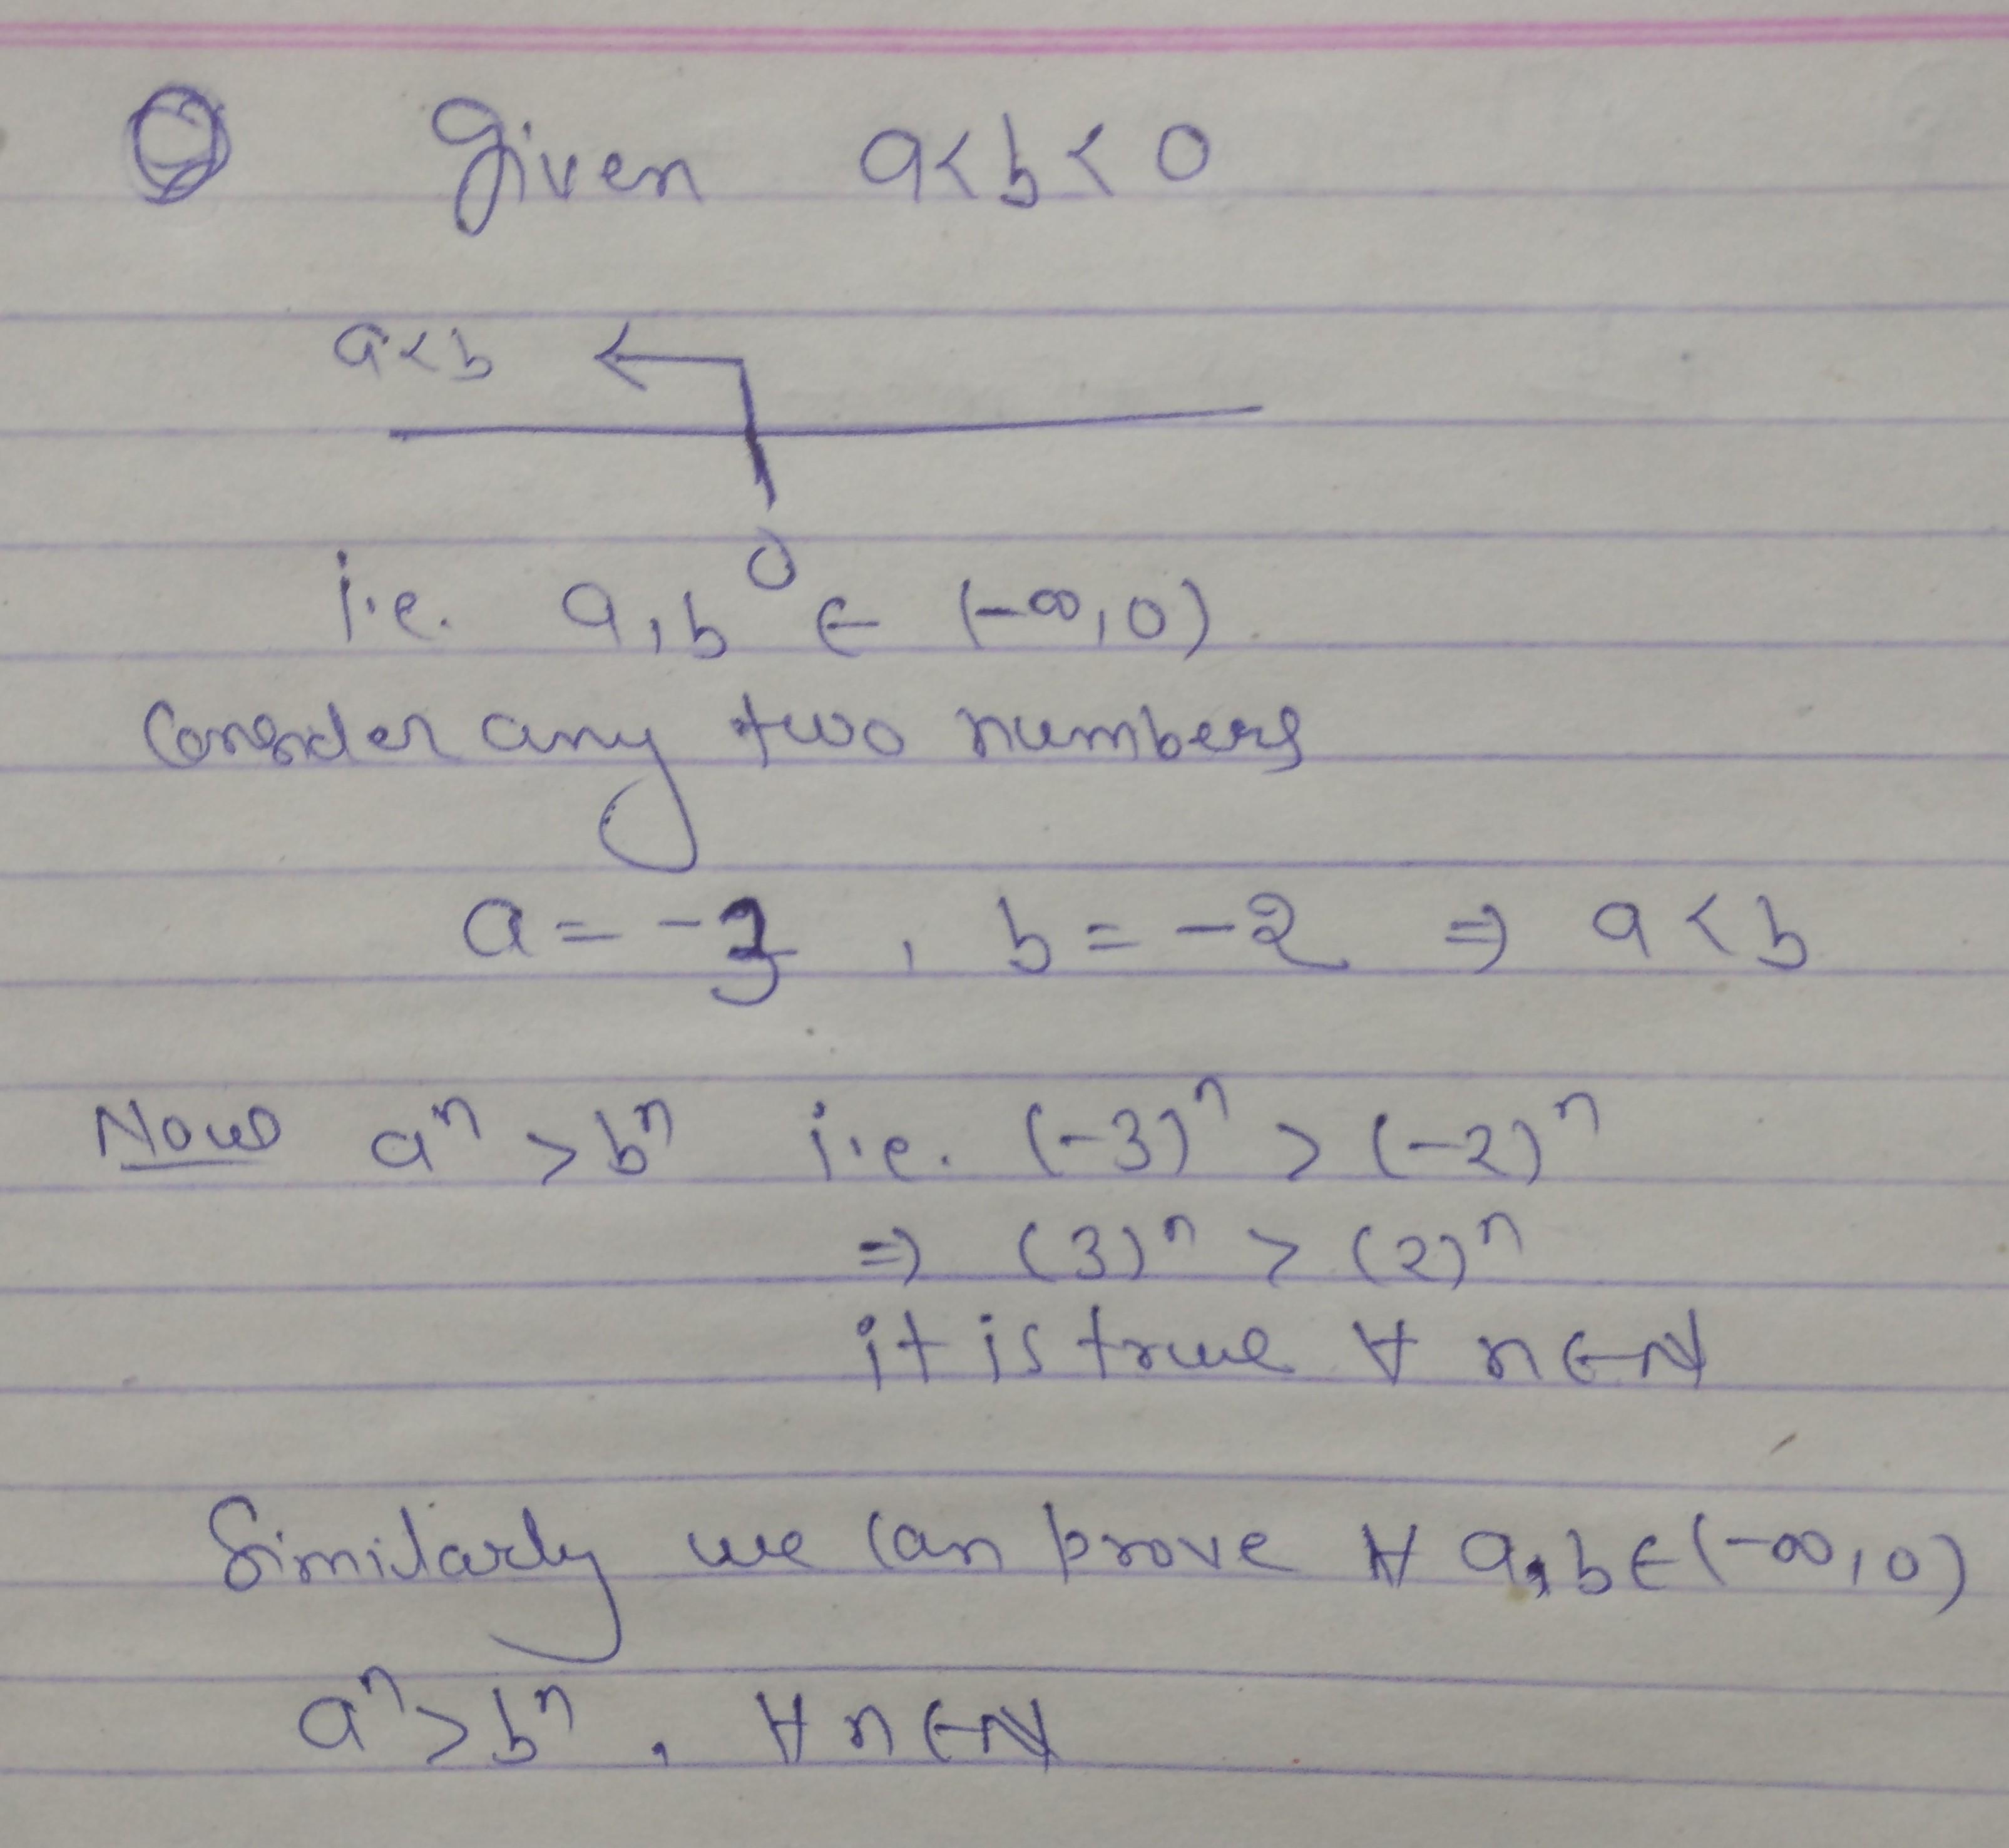 Given a<b<0
a<b
0
i.e. a,b ∈ (-∞,0)
Consider any two numbers
a = -3 , b = -2 ⇒ a < b
Now aⁿ > bⁿ i.e. (-3)ⁿ > (-2)ⁿ
⇒ (3)ⁿ > (2)ⁿ
it is true ∀ n∈N
Similarly we can prove ∀ a,b∈(-∞,0)
aⁿ>bⁿ, ∀n∈N